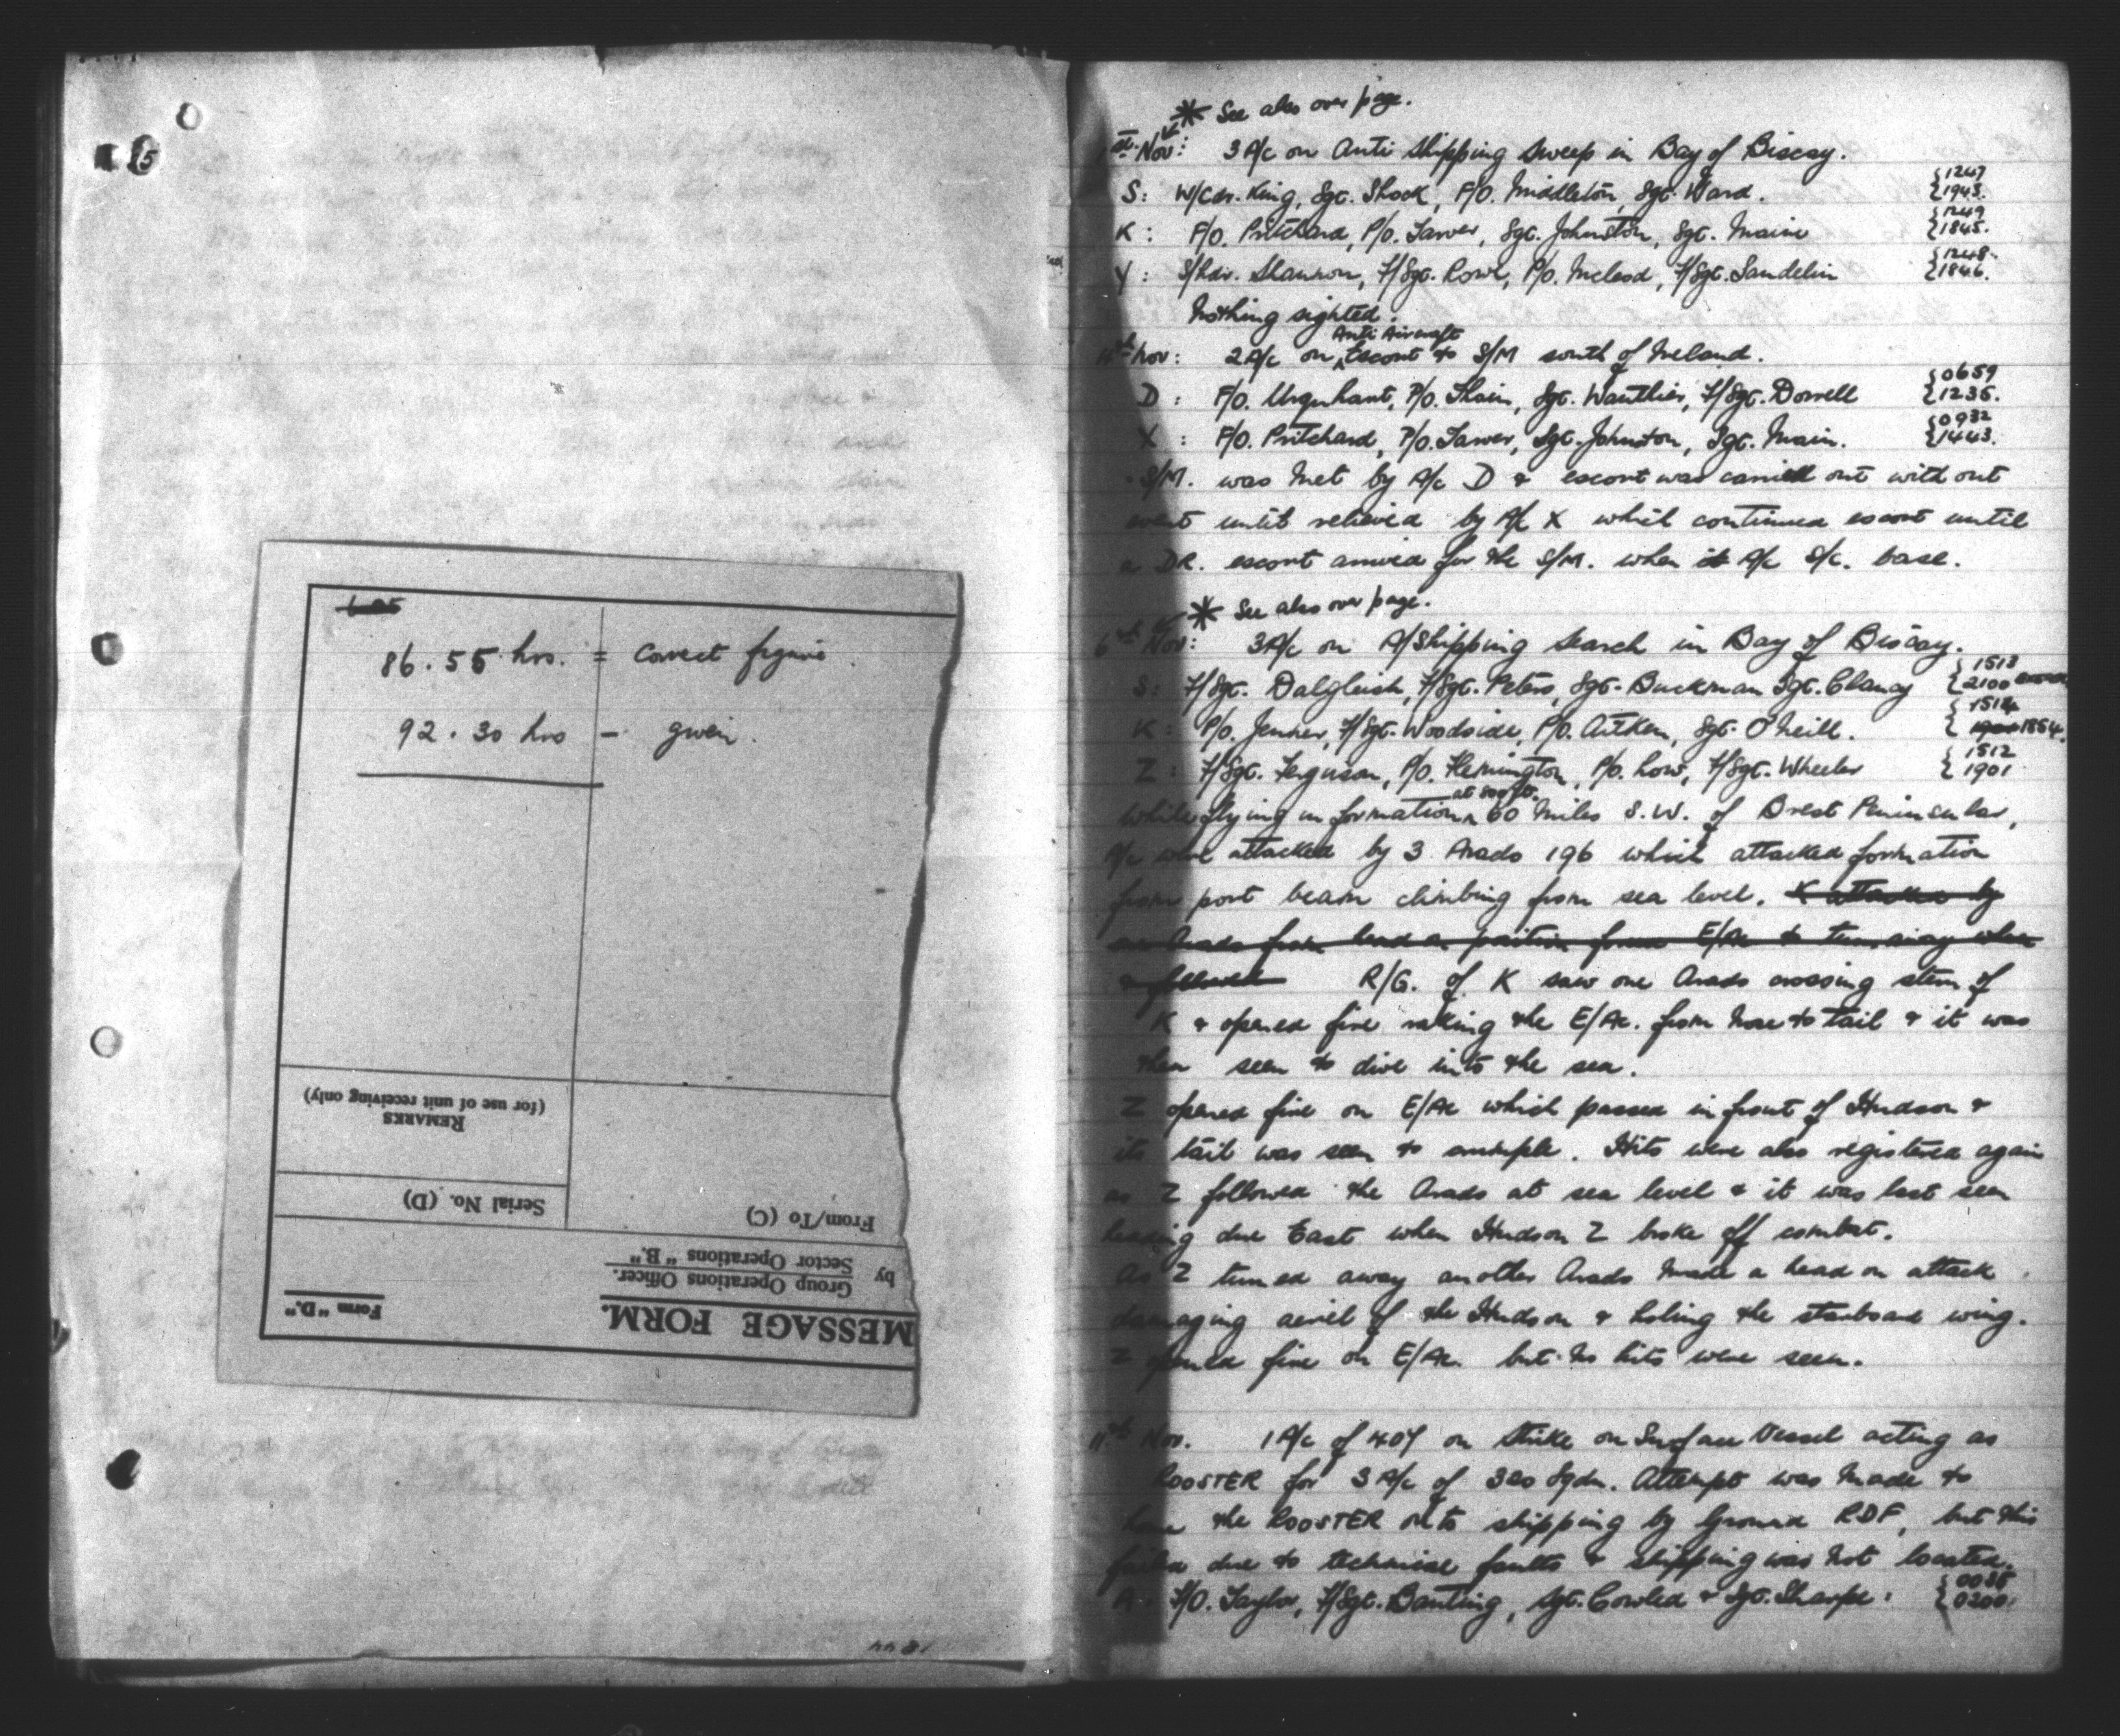 15
6.25
86.55 hrs. = Correct figure.
92.30 hrs - given.
REMARKS
(for use of unit receiving only)
Serial No. (D)
From/To (C)
by Group Operations Officer.
Sector Operations "B."
MESSAGE FORM.
Form "D."
* See also over page.
1st Nov: 3 A/c on Anti Shipping Sweep in Bay of Biscay.
S: W/Cdr. King, Sgt. Shock, P/O. Middleton, Sgt. Ward. {1247 1943.
K: F/O. Pritchard, P/O. Tarver, Sgt. Johnston, Sgt. Main {1249 1845.
Y: S/Ldr. Shannon, F/Sgt. Rowe, P/O. McLeod, F/Sgt. Sandelin {1248. 1846.
Nothing sighted.
Nov: 2 A/c on Anti Aircraft Escort to S/M south of Ireland.
D: F/O. Urquhart, P/O. Thain, Sgt. Wauthier, F/Sgt. Dorrell {0659 1235.
X: F/O. Pritchard, P/O. Tarver, Sgt. Johnston, Sgt. Main. {0932 1443.
S/M. was met by A/c D & escort was carried out without
event until relieved by A/c X which continued escort until
a DR. escort arrived for the S/M. when it A/c S/C. base.
* See also over page.
6th Nov: 3 A/c on A/Shipping Search in Bay of Biscay.
S: F/Sgt. Dalgleish, F/Sgt. Peters, Sgt. Buckman Sgt. Clancy {1513 2100
K: P/O. Jenner, F/Sgt. Woodside, P/O. Aitken, Sgt. O'Neill. {1514 1854.
Z: F/Sgt. Ferguson, P/O. Flemington, P/O. Low, F/Sgt. Wheeler {1512 1901
While flying in formation at 800 ft. 60 miles S.W. of Brest Peninsular,
A/c were attacked by 3 Arado 196 which attacked formation
from port beam climbing from sea level. K attacked by
an Arado from head on position forced E/Ac to turn away when
& followed R/G. of K saw one Arado crossing stern of
K & opened fire raking the E/Ac. from nose to tail & it was
then seen to dive into the sea.
Z opened fire on E/Ac which passed in front of Hudson &
its tail was seen to crumple. Hits were also registered again
as Z followed the Arado at sea level & it was last seen
heading due East when Hudson Z broke off combat.
As Z turned away another Arado made a head on attack
damaging aeriel of the Hudson & holing the starboard wing.
Z opened fire on E/Ac. but no hits were seen.
11th Nov. 1 A/c of 407 on Strike on Surface Vessel acting as
ROOSTER for 3 A/c of 320 Sqdn. Attempt was made to
home the ROOSTER onto shipping by Ground RDF, but this
failed due to technical faults & shipping was not located.
A: F/O. Taylor, F/Sgt. Banting, Sgt. Cowled & Sgt. Sharpe. {0035 0200.